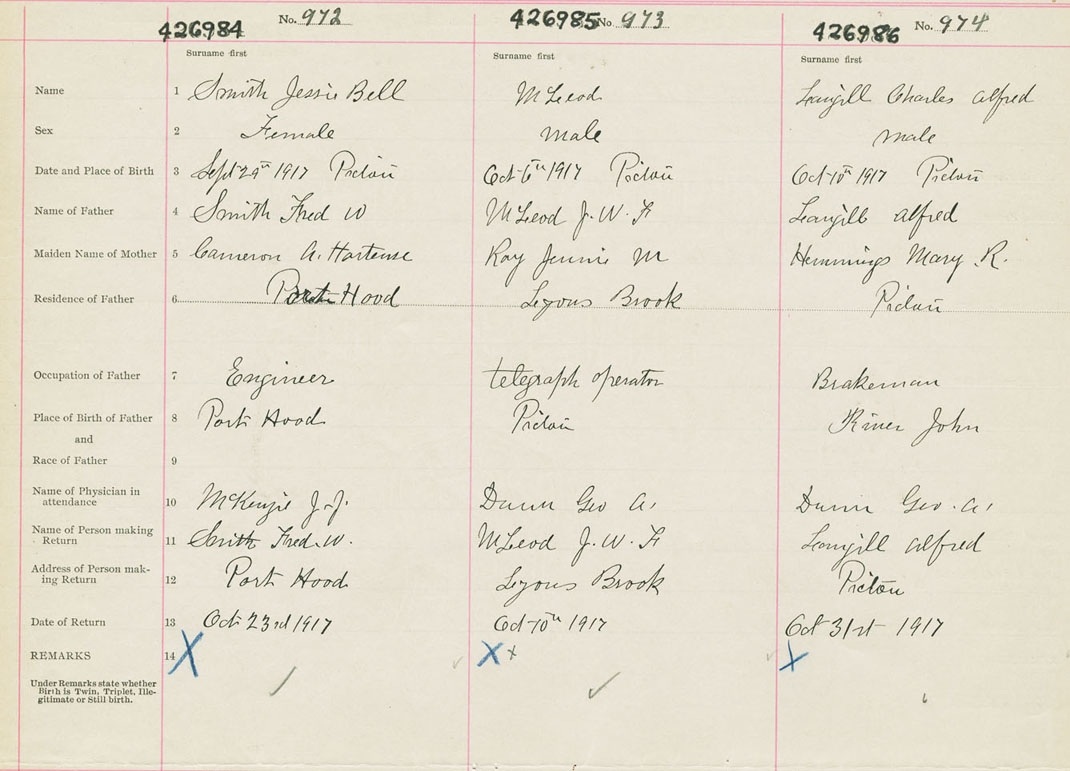 No. 972
426984
Surname first
426985
No. 973
Surname first
426986
No. 974
Surname first
Name 1 Smith Jessie Bell
McLeod
Langill Charles Alfred
Sex 2 Female
Male
Male
Date and Place of Birth 3 Sept 29th 1917 Pictou
Oct 6th 1917 Pictou
Oct 10th 1917 Pictou
Name of Father 4 Smith Fred W
McLeod J. W. F
Langill Alfred
Maiden Name of Mother 5 Cameron A. Hortense
Roy Jennie M
Hemmings Mary R.
Residence of Father 6 Port Hood
Lyons Brook
Pictou
Occupation of Father 7 Engineer
telegraph operator
Brakeman
Place of Birth of Father 8 Port Hood
Pictou
River John
and
Race of Father 9
Name of Physician in
attendance 10 McKenzie J. J.
Dunn Geo A.
Dunn Geo. A.
Name of Person making
Return 11 Smith Fred. W.
McLeod J. W. F
Langill Alfred
Address of Person mak-
ing Return 12 Port Hood
Lyons Brook
Pictou
Date of Return 13 Oct 23rd 1917
Oct 10th 1917
Oct 31st 1917
REMARKS 14 X
X x
X
Under Remarks state whether
Birth is Twin, Triplet, Ille-
gitimate or Still birth.